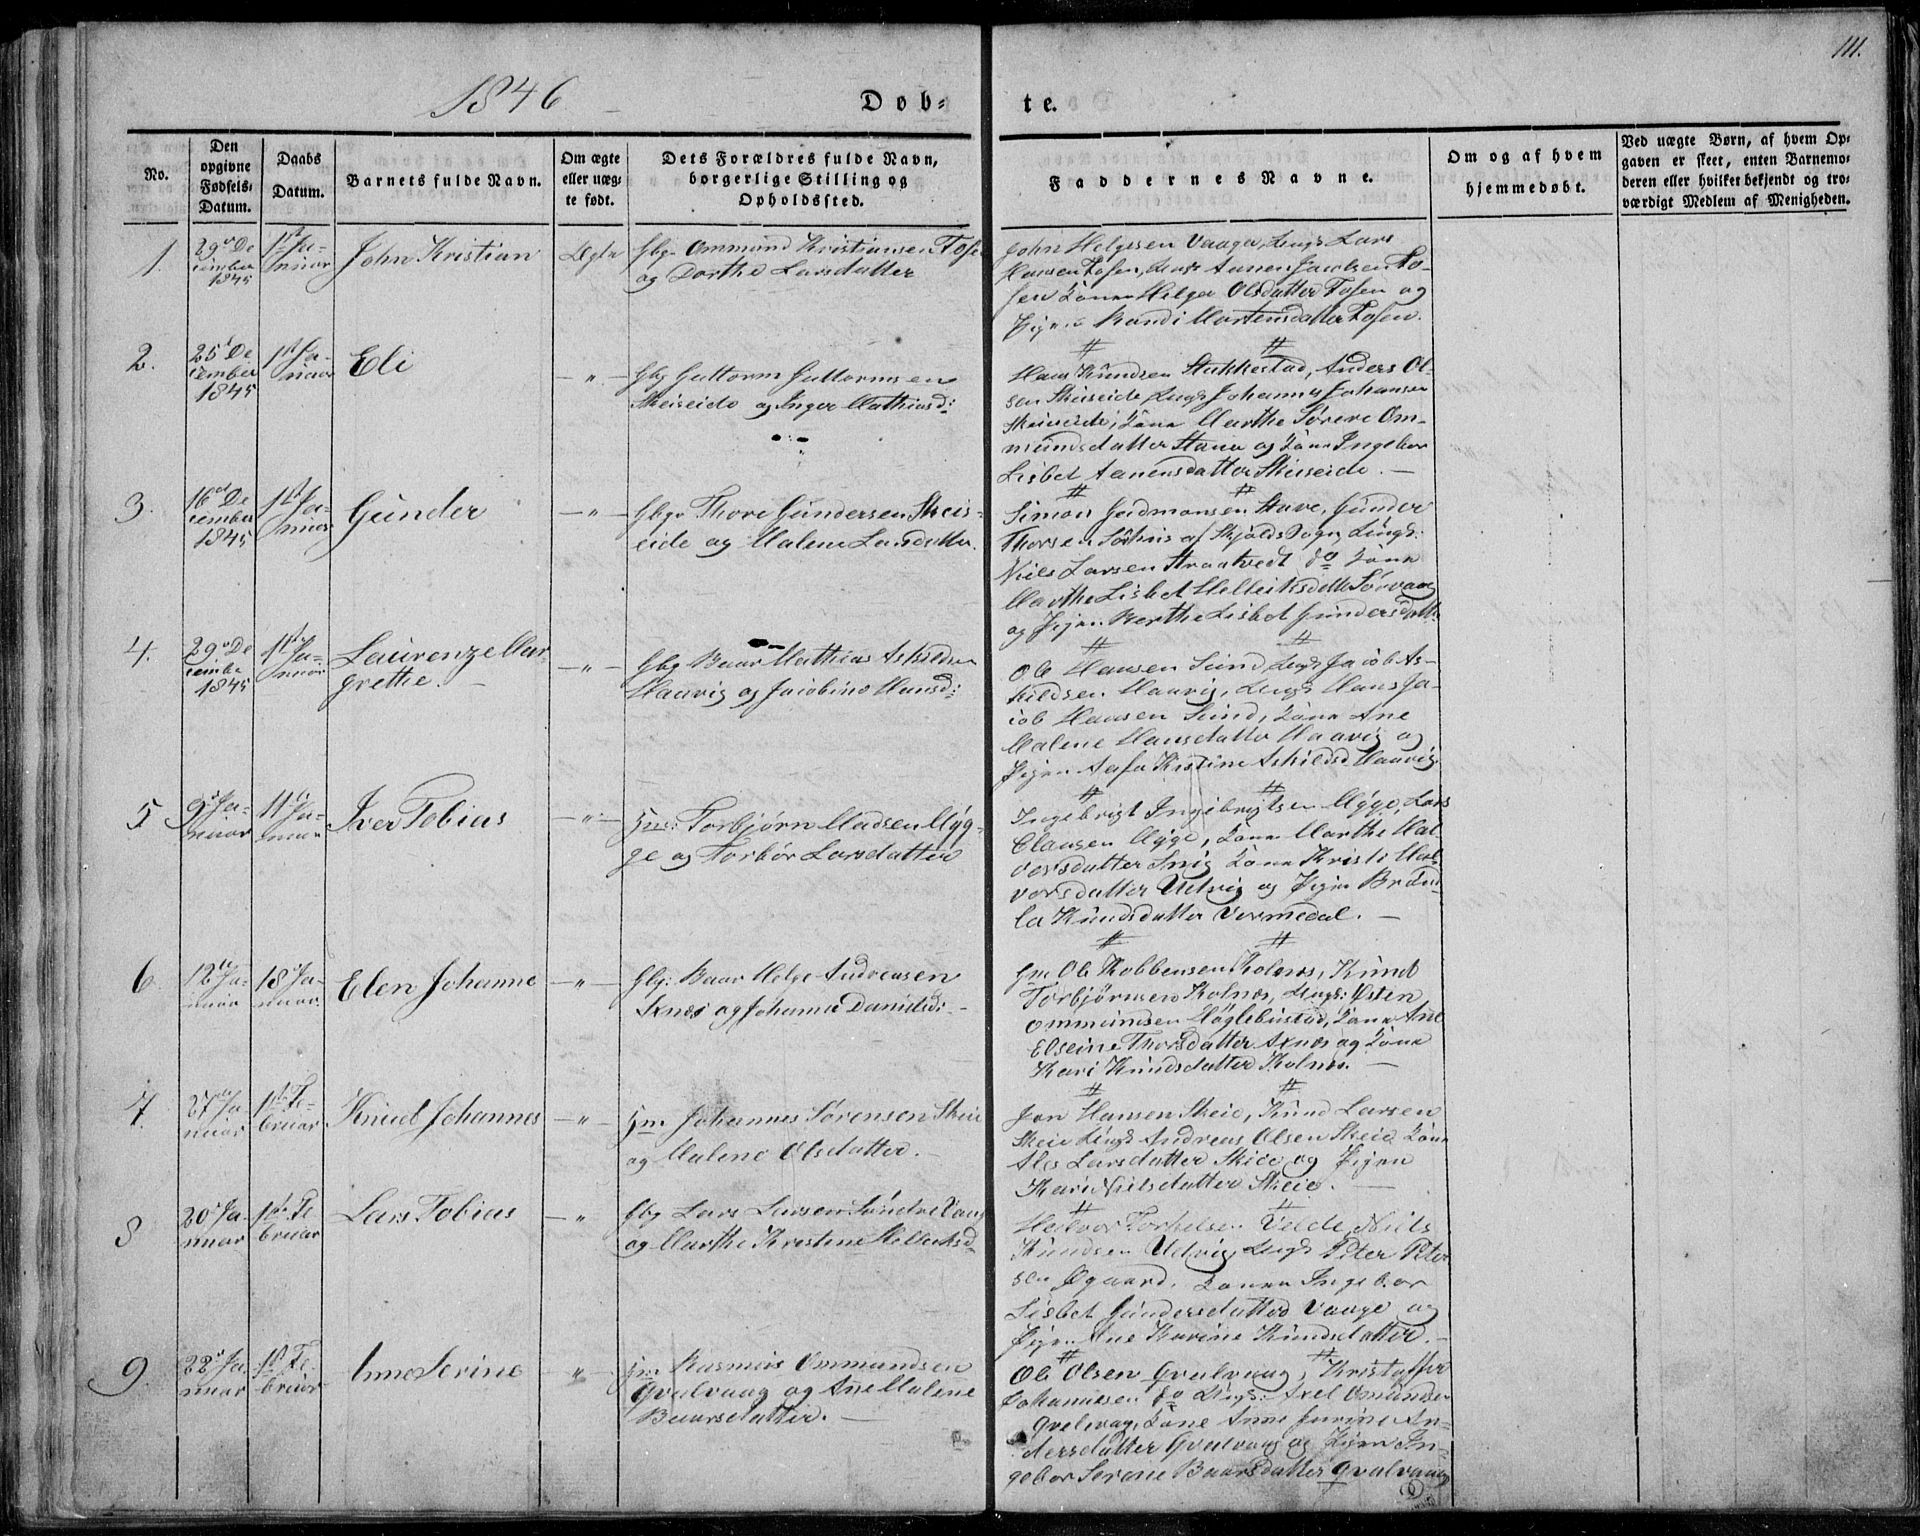 111.
1846
Døb-
te.
No.
Den
opgivne
Fødsels-
Datum.
Daabs
Datum.
Barnets fulde Navn.
Om ægte
eller uæg-
te født.
Dets Forældres fulde Navn,
borgerlige Stilling og
Opholdssted.
Faddernes Navne.
Om og af hvem
hjemmedøbt.
Ved uægte Børn, af hvem Op-
gaven er skeet, enten Barnemo-
deren eller hvilket bekjendt og tro-
værdigt Medlem af Menigheden.
1.
29de De
cember
1845
1st Ja-
nuar
John Kristian
Ægte
Gbr Ommund Kristiansen Fosen
og Dorthe Larsdatter
John Helgesen Vaage, Ungk Lars
Hansen Fosen, Ungk Aanen Jacobsen Fo-
sen Kone Helga Olsdatter Fosen og
Pigen Randi Mortensdatter Fosen.
2.
25d De
cember
1845
1st Ja-
nuar
Eli
Gbr Guttorm Guttormsen
Skeiseide og Inger Mathiasd:
Hans Knudsen Stukkestad, Anders Ol-
sen Skeiseide, Ungk Johannes Johansen
Skeiseide, Kone Marthe Sørene Om-
mundsdatter Stave og Kone Ingebor
Lisbet Aanensdatter Skeiseide.
3.
16d De
cember
1845
1st Ja-
nuar
Gunder
Gbr Thore Gundersen Skeis-
eide og Malene Larsdatter.
Simon Gudmansen Stave, Gunder
Thorsen af Skjolds Sogn, Ungk:
Niels Larsen Straatvedt do Kone
Marthe Lisbet Helleiksdtr Sørvaag
og Pigen Berthe Lisbet Gundersdatt.
4.
29de De
cember
1845
1st Ja-
nuar
Laurenze Mar-
grethe.
Gbr Baar Mathias Askildsen
Haavig og Jacobine Hansd:
Ole Hansen Sund, Ungk Jacob As-
kildsen Haavig, Ungk Hans Ja-
cob Hansen Sund, Kone Ane
Malene Hansdatter Haavig og
Pigen Aasa Kistine Askildsd. Haavig.
5
9d Ja-
nuar
11d Ja-
nuar
Iver Tobias
Hm: Torbjørn Madsen Myg-
ge og Torbor Larsdatter
Ingebrigt Ingebrigtsen Mygge, Lars
Clausen Mygge, Kone Marthe Hal
vorsdatter Snig Kone Kristi Hal-
vorsdatter Udvig og Pigen
Knudsdatter Vormedal.
6
12te Ja-
nuar
18d Ja-
nuar.
Elen Johanne
Gbr: Baar Helge Andreasen
Axnæs og Johanne Danielsd:
Gm Ole Kolnæs, Knud
Torbjørnsen Kolnæs, Ungk: Østen
Ommundsen Høglebustad, Kone Ane
Elseine Thorsdatter Axnæs og Kone
Kari Knudsdatter Kolnæs.
7.
27de Ja-
nuar
1st Fe-
bruar
Knud Johannes
Hm Johannes Sørensen Skeie
og Malene Olsdatter.
Jon Hansen Skeie, Knud Larsen
Skeie Ungk Andreas Olsen Skeie Kone
Larsdatter Skeie og Pigen
Kari Nielsdatter Skeie.
8
20d Ja-
nuar
1st Fe-
bruar
Lars Tobias
Gbr Lars Larsen Søndre Vaag
og Marthe Kristine Helleiksd
Halvor Torkelsen Velde, Niels
Knudsen Udvig, Ungk Peter Peter
sen Øgaard. Kone Ingebor
Lisbet Gundersdatter Vaage og
Pigen Ane Karine Knudsdatter.
9.
22d Ja-
nuar
1st Fe-
bruar
Anne Serine
Hm Rasmus Ommundsen
Qvalvaag og Ane Malene
Baarsdatter.
Ole Olsen Qvalvaag, Kristoffer
Johannesen do Ungk: Axel Omundsen
Qvalvag, Kone Anne Jurine An-
dersdatter Qvalvaag og Pigen In-
gebor Serene Baarsdatter Qvalvaag